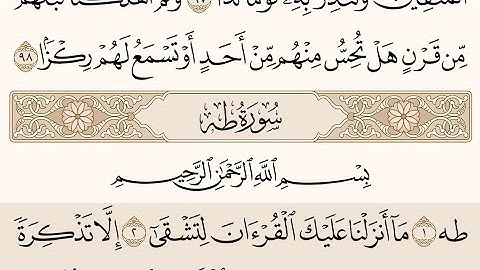 ٱلۡمُتَّقِينَ وَتُنذِرَ بِهِۦ قَوۡمٗا لُّدّٗا ٩٧ وَكَمۡ أَهۡلَكۡنَا قَبۡلَهُم
مِّن قَرۡنٍ هَلۡ تُحِسُّ مِنۡهُم مِّنۡ أَحَدٍ أَوۡ تَسۡمَعُ لَهُمۡ رِكۡزَۢا ٩٨
سُورَةُ طه
بِسۡمِ ٱللَّهِ ٱلرَّحۡمَٰنِ ٱلرَّحِيمِ
طه ١ مَآ أَنزَلۡنَا عَلَيۡكَ ٱلۡقُرۡءَانَ لِتَشۡقَىٰٓ ٢ إِلَّا تَذۡكِرَةٗ